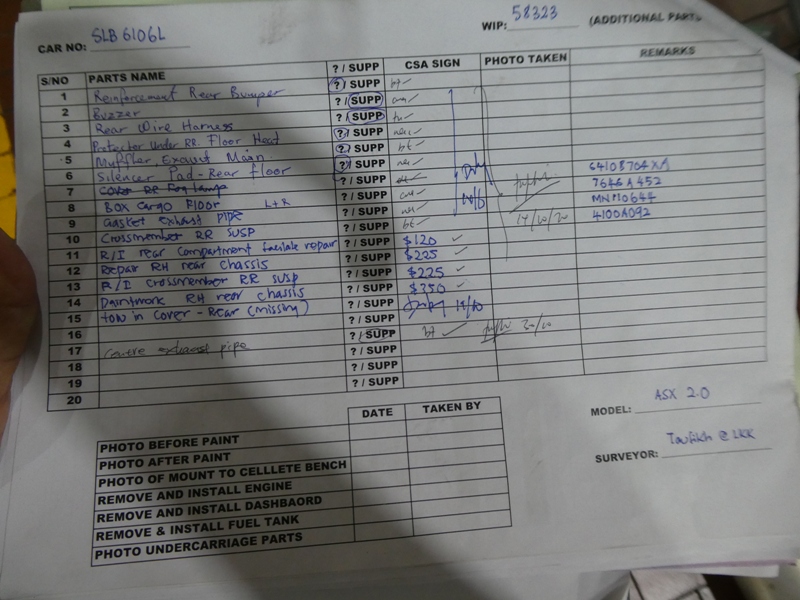 WIP: 58323 (ADDITIONAL PARTS
CAR NO: SLB 6106L
S/NO PARTS NAME ? / SUPP CSA SIGN PHOTO TAKEN REMARKS
1 Reinforcement Rear Bumper ? / SUPP
2 Buzzer ? / SUPP
3 Rear Wire Harness ? / SUPP
4 Protector Under RR. Floor Heat ? / SUPP
5 Muffler, Exhaust Main ? / SUPP
6 Silencer Pad - Rear floor ? / SUPP 6410B704XA
7 Cover RR Fog lamp ? / SUPP 7646A452
8 BOX CARGO FLOOR L+R ? / SUPP MN110644
9 Gasket exhaust pipe ? / SUPP 14/10/20 4100A092
10 Crossmember RR SUSP ? / SUPP bt
11 R/I rear compartment facilate repair ? / SUPP $120
12 Repair RH rear chassis ? / SUPP $225
13 R/I crossmember RR susp ? / SUPP $225
14 Paintwork RH rear chassis ? / SUPP $350
15 tow in cover - Rear (missing) ? / SUPP 14/10
16 ? / SUPP bt 20/10
17 Centre exhaust pipe ? / SUPP
18 ? / SUPP
19 ? / SUPP
20
DATE TAKEN BY
PHOTO BEFORE PAINT
PHOTO AFTER PAINT
PHOTO OF MOUNT TO CELLLETE BENCH
REMOVE AND INSTALL ENGINE
REMOVE AND INSTALL DASHBAORD
REMOVE & INSTALL FUEL TANK
PHOTO UNDERCARRIAGE PARTS
MODEL: ASX 2.0
SURVEYOR: Taufikh @ LKK